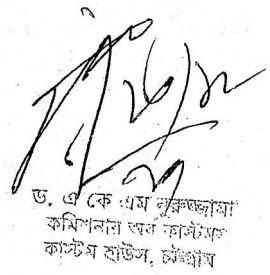 ড. এ কে এম নুরুজ্জামান
কমিশনার অব কাস্টমস
কাস্টম হাউস, চট্টগ্রাম